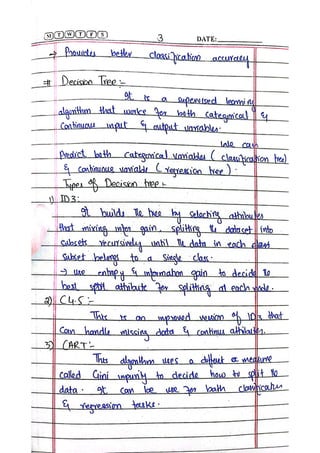 M T W T F S
3
DATE:
→ Provides better classification accuracy
# Decision Tree :-
It is a supervised learning
algorithm that works for both categorical &
Continuous input & output variables.
We can
Predict both categorical variables ( classification tree)
& continuous variable ( regression tree ).
Types of Decision tree :-
1) ID3:
It builds the tree by selecting attributes
that mixing infor gain, splitting the dataset into
subsets recursively until the data in each class
Subset belongs to a single class.
→ use entropy & information gain to decide the
best split attribute for splitting at each node.
2) C4.5 :-
This is an improved version of ID3 that
Can handle missing data & continue attributes.
3) CART:-
This algorithm uses a diffent measure
called Gini impurity to decide how to split the
data. It can be use for both classification
& regression tasks.